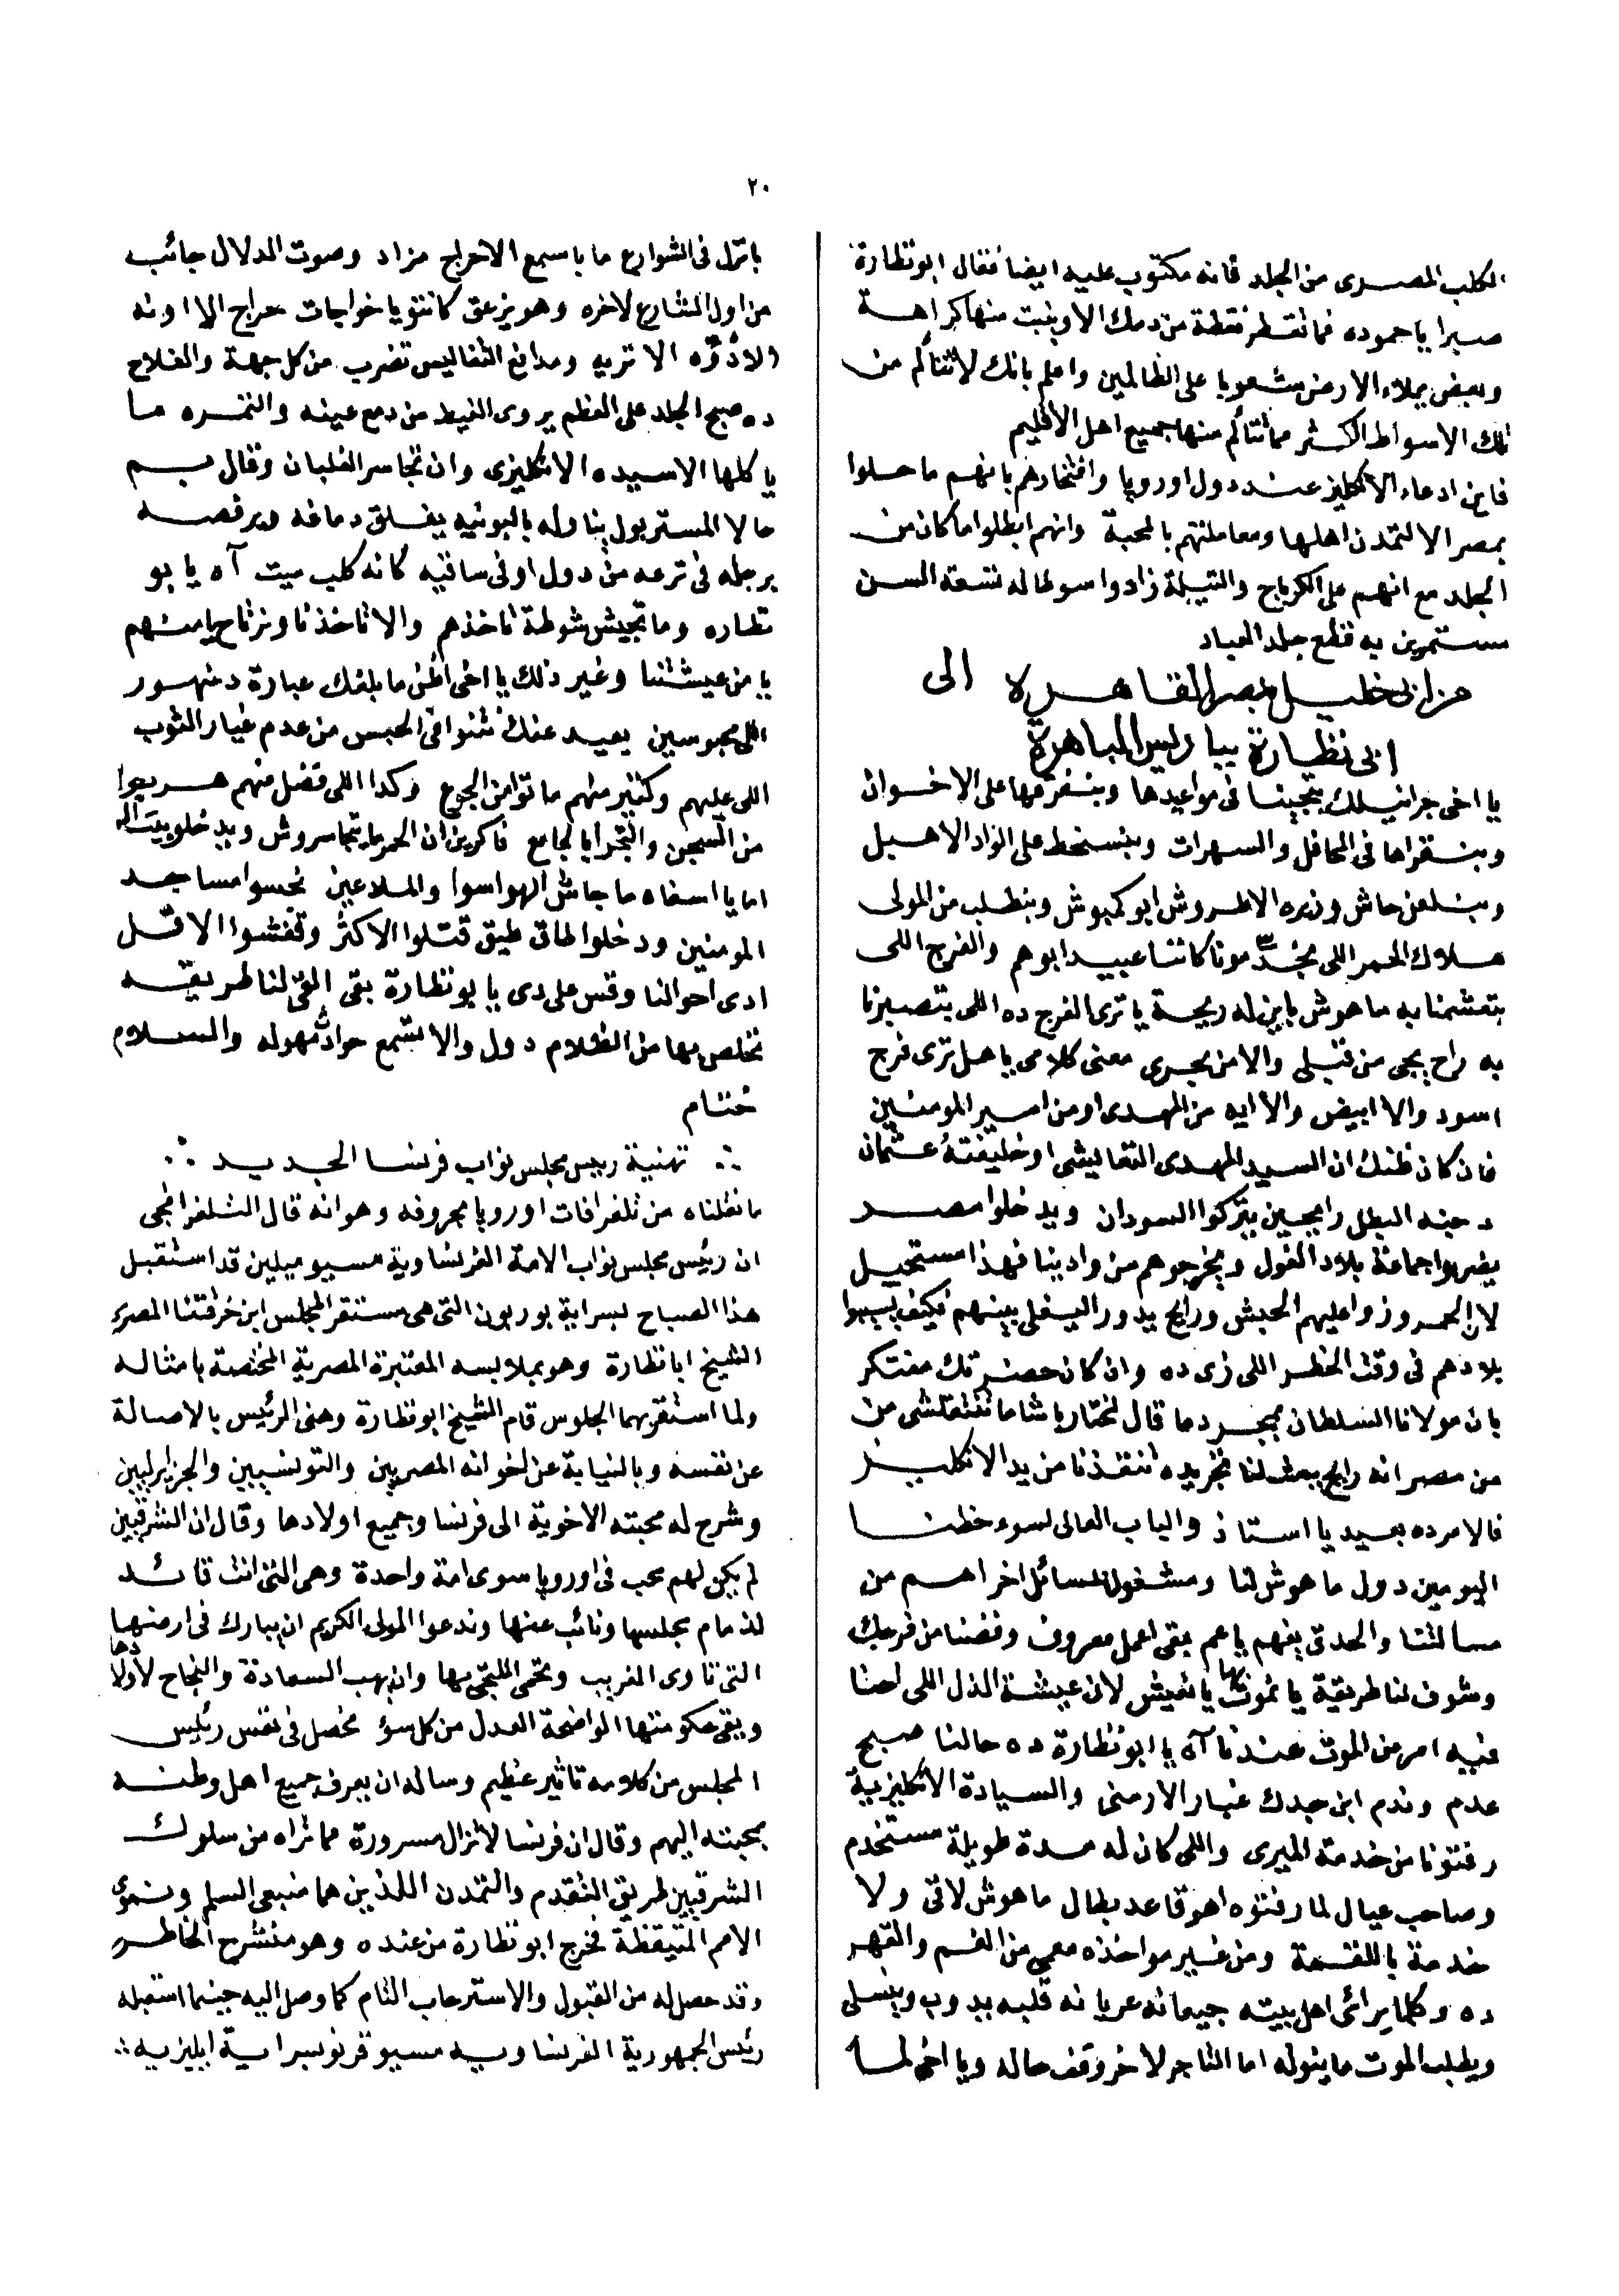 ٢٠
الكلب المصرى من الجلد فانه مكتوب عليه ايضا فقال ابو نظارة
صبرا يا حموده فما نقطر نقطة من دمك الا وينبت منها كراهة
وبغض يملاء الارض شعوبا على الظالمين واعلم بانك لا تتألم من
تلك الاسواط اكثر مما تتألم منها جميع اهل الاقليم
فاين ادعاء الانكليز عند دول اوروپا وافتخارهم بانهم ما حلوا
بمصر الا لتمدن اهلها ومعاملتهم بالمحبة وانهم ابطلوا ما كان من
الجلد مع انهم على الكرباج والتيلة زادوا سوطا له تسعة السن
مستمرين به قطع جلد العباد
من ابى خليل بمصر القاهرة الى
ابى نظارة بباريس الباهرة
يا اخى جرانيلك بتجينا فى مواعيدها وبنفرقها على الاخوان
وبنقراها فى المحافل والسهرات وبنسخط على الواد الاهبل
وبنلعن حاش وزيره الاطروش ابو كمبوش وبنطلب من المولى
هلاك الحمر اللى مجدّ موناكاتنا عبيد ابوهم والفرج اللى
بتعشمنا به ما هوش باين له ريحة يا ترى الفرج ده اللى بتصبرنا
به راح يجى من قبلى والا من بحرى معنى كلامى يا هل ترى فرج
اسود والا ابيض والا ايه من المهدى او من امير المومنين
فان كان ظنك ان السيد المهدى التعايشى او خليفته عثمان
دجنه البطل رايحين بيتركوا السودان ويدخلوا مصر
يضربوا جماعة بلاد الفول ويخرجوهم من وادينا فهذا مستحيل
لان الحمر وزوا عليهم الحبش ورايح يدور السيف بينهم فكيف يسيبوا
بلادهم فى وقت الخطر اللى زى ده وان كان حضرتك مفتكر
بان مولانا السلطان بمجرد ما قال لمختار باشا ما تنتقلشى من
من مصر انه رايح يبعث لنا تجريده تنقذنا من يد الانكليز
فالامر ده بعيد يا استاذ والباب العالى لسوء حظنا
اليومين دول ما هوش لنا ومشغول لمسائل اخر اهم من
مسالتنا والحدق يفهم يا عم بقى اعمل معروف وفضنا من فرجك
وشوف لنا طريقة يا نموت بها يا نعيش لان عيشة الذل اللى احنا
فيه امر من الموت عندنا آه يا ابو نظارة ده حالنا صبح
عدم وندم ابن جدك غبار الارمنى والسيادة الانكليزية
رفتونا من خدمة الميرى واللى كان له مدة طويلة مستخدم
وصاحب عيال لما رفتوه اهو قاعد بطال ما هوش لاقى ولا
خدمة باللقمة ومن غير مواخذه معمى من الغم والقهر
ده وكلما يرائى اهل بيته جيعانه عريانه قلبه يدوب وينسلى
ويطلب الموت ما ينوله اما التاجر لاخر وقف حاله ويا اخى لما
باتزل فى الشوارع ما باسمع الا حراج مزاد وصوت الدلال جائب
من اول الشارع لاخره وهو يزعق كانتو يا خواجات حراج الا اونه
الا دُوّه الا تريه ومدافع التفاليس تضرب من كل جهة والفلاح
ده صبح الجلد على العظم يروى الغيط من دمع عينه والثمره ما
ياكلها الا سيده الانكليزى وان تجاسر الغلبان وقال بم
حالا المستر بول يناوله بالبونيه يفلق دماغه ويرفصه
برجله فى ترعه من دول او فى ساقيه كانه كلب ميت آه يا بو
نظاره وما تجيش شوطة تاخذهم والا تاخذنا ونرتاح يا منهم
يا من عيشتنا وغير ذلك يا اخى اظن ما بلغك عبارة دمنهور
اللى محبوسين بعيد عنك نتنوا فى الحبس من عدم غيار الثوب
اللى عليهم وكثير منهم ماتوا من الجوع وكدا اللى فضل منهم هربوا
من السجن والتجرأ بالجامع فاكرين ان الحمر ما يتجاسروش ويدخلوا بيت الله
اما يا اسفاه ما جاش الهواسوا والملاعين نجسوا مساجد
المومنين ودخلوا طاق طيق قتلوا الاكثر وقفشوا الاقل
ادى احوالنا وقس على دى يا بو نظارة بقى القى لنا طريقه
نخلص بها من الظلام دول والا تسمع حوادث مهوله والسلام
ختام
∴ تهنية رييس مجلس نواب فرنسا الجديد ∴
ما نقلناه من تلغرافات اوروپا بحروفه وهو انه قال التلغرافجى
ان رئيس مجلس نواب الامة الفرنساوية مسيو ميلين قد استقبل
هذا الصباح بسراية بوربون التى هى مستقر المجلس ابن خرقتنا المصرى
الشيخ ابا نظارة وهو بملابسه المعتبرة المصرية المختصة بامثاله
ولما استقر بهما الجلوس قام الشيخ ابو نظارة وهنى الرئيس بالاصالة
عن نفسه وبالنيابة عن اخوانه المصريين والتونسيين والجزايرليين
وشرح له محبته الاخوية الى فرنسا وجميع اولادها وقال ان الشرقيين
لم يكن لهم محب فى اوروپا سوى امة واحدة وهى التى انت قائد
لذمام مجلسها ونائب عنها وندعوا المولى الكريم ان يبارك فى ارضها
التى تاوى الغريب وتحمى الملتجى بها وان يهب السعادة والنجاح لأولادها
ويقى حكومتها الواضحة العدل من كل سؤ فحصل فى نفس رئيس
المجلس من كلامه تاثير عظيم وساله ان يعرف جميع اهل وطنه
بمحبته اليهم وقال ان فرنسا لا تزال مسرورة مما تراه من سلوك
الشرقيين طريق التقدم والتمدن اللذين هما منبعى السلم ونمو
الامم المتيقظة فخرج ابو نظارة من عنده وهو منشرح الخاطر
وقد حصل له من القبول والاسترحاب التام كما وصل اليه حينما استقبله
رئيس الجمهورية الفرنساويه مسيو قرنو بسراية ايليزيه ∴